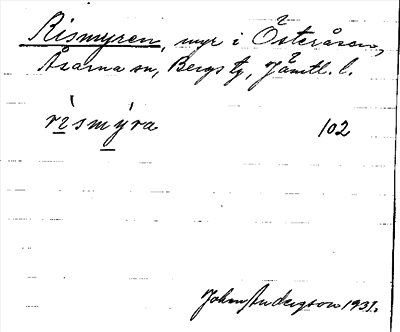 Rismyren, myr i Österåsen,
Åsarna sn, Bergs tg, Jämtl. l.
rìsmýra 102
John Anderzson 1931.